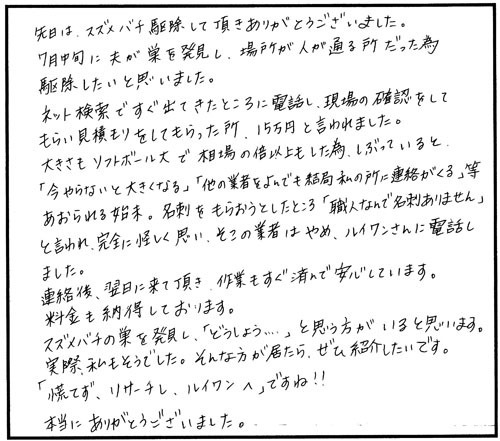 先日は、スズメバチ駆除して頂きありがとうございました。
7月中旬に夫が巣を発見し、場所が人が通る所だった為
駆除したいと思いました。
ネット検索ですぐ出てきたところに電話し、現場の確認をして
もらい見積もりをしてもらった所、15万円と言われました。
大きさもソフトボール大で相場の倍以上もした為、しぶっていると、
「今やらないと大きくなる」「他の業者をよんでも結局私の所に連絡がくる」等
あおられる始末。名刺をもらおうとしたところ「職人なんで名刺ありません」
と言われ、完全に怪しく思い、そこの業者はやめ、ルイワンさんに電話し
ました。
連絡後、翌日に来て頂き、作業もすぐ済んで安心しています。
料金も納得しております。
スズメバチの巣を発見し、「どうしよう…」と思う方がいると思います。
実際、私もそうでした。そんな方が居たら、ぜひ紹介したいです。
「慌てず、リサーチし、ルイワンへ」ですね!!
本当にありがとうございました。